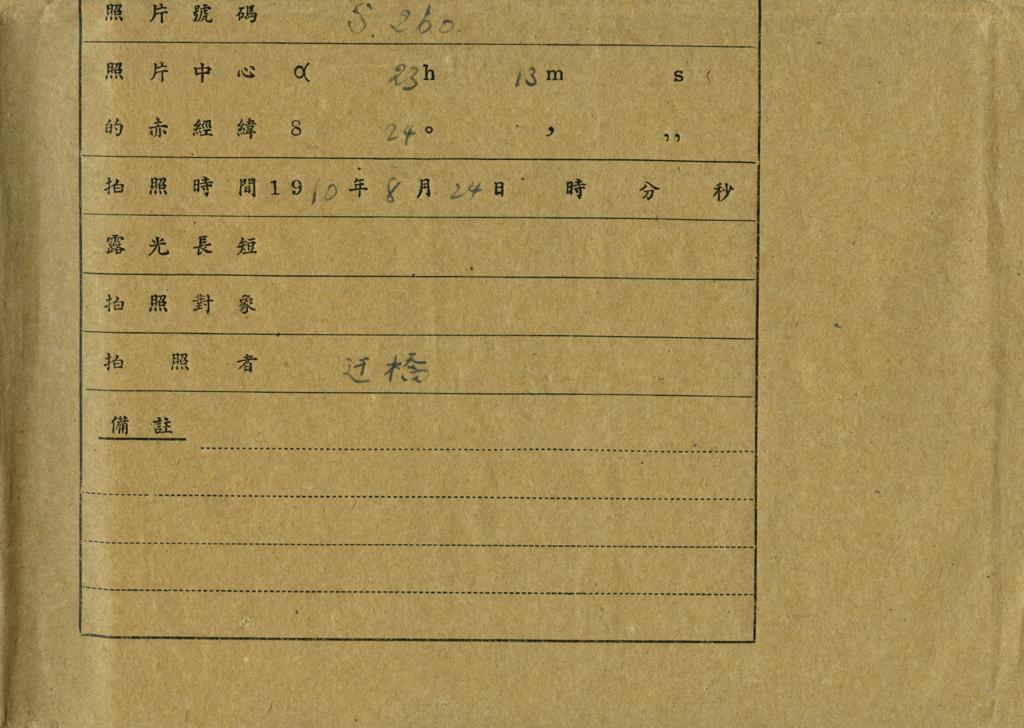 照片號碼 S. 260.
照片中心 α 23h 13m s
的赤經緯 δ 24° ′ ″
拍照時間 1910年8月24日 時 分 秒
露光長短
拍照對象
拍照者 迂橋
備註